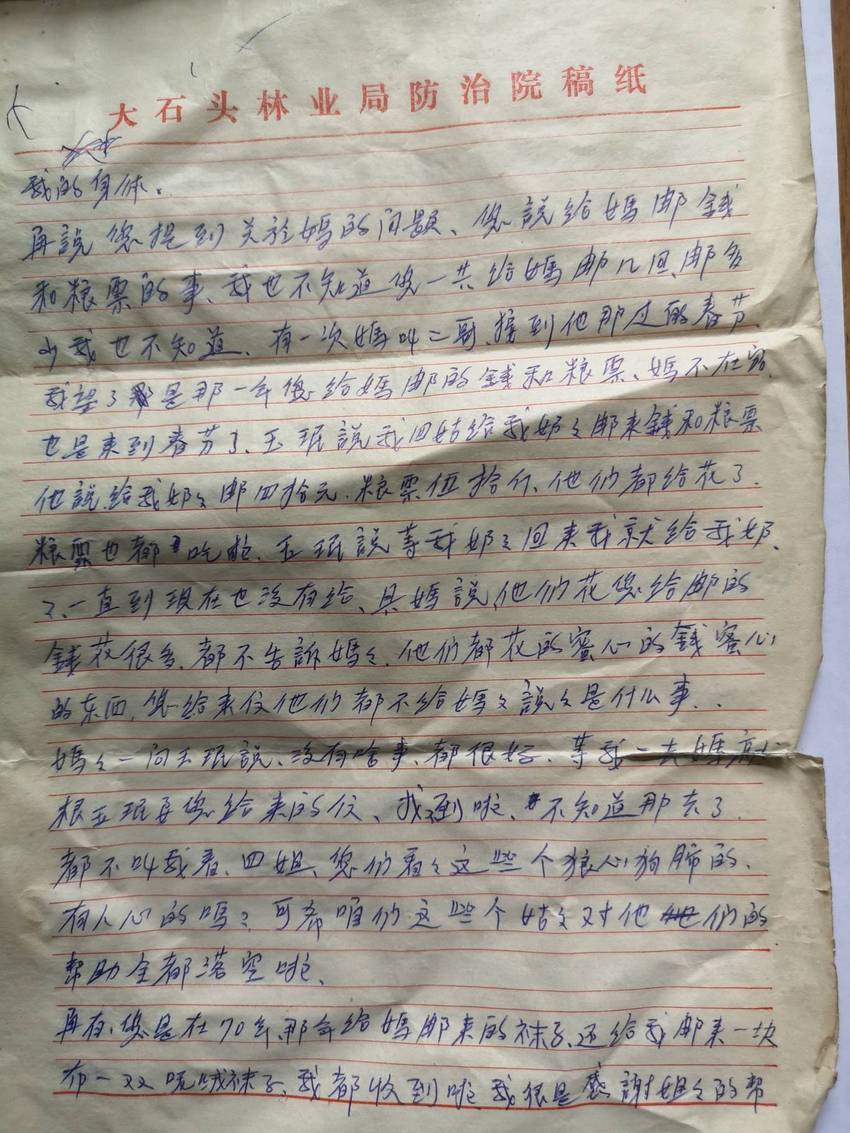 大石头林业局防治院稿纸
我的身体。
再説您提到关於媽的问题、您説给媽邮錢
和粮票的事、我也不知道您一共给媽邮几回、邮多
少我也不知道、有一次媽叫二哥、接到他那过的春节、
我望了是那一年您给媽邮的錢和粮票、媽不在家、
也是来到春节了、玉珉説我四姑给我奶々邮来錢和粮票
他説给我奶々邮四拾元、粮票伍拾斤、他们都给花了、
粮票也都吃啦、玉珉説等我奶々回来我就给我奶、
々、一直到现在也没有给、具媽説、他们花您给邮的
錢花很多、都不告訴媽々、他们都花的蜜心的錢蜜心
的东西、您给来信他们都不给媽々説々是什么事、、
媽々一问玉珉説、没有啥事、都很好、等我一去媽就
根玉珉要您给来的信、找不到啦、不知道那去了、
都不叫我看、四姐、您们看々这些个狼心狗肺的、
有人心的嗎？可希咱们这些个姑々对他们的
帮助全都落空啦、
再有、您是在70年、那年给媽邮来的袜子、还给我邮来一块
布一双呢绒袜子、我都收到啦我很是感謝姐々的帮